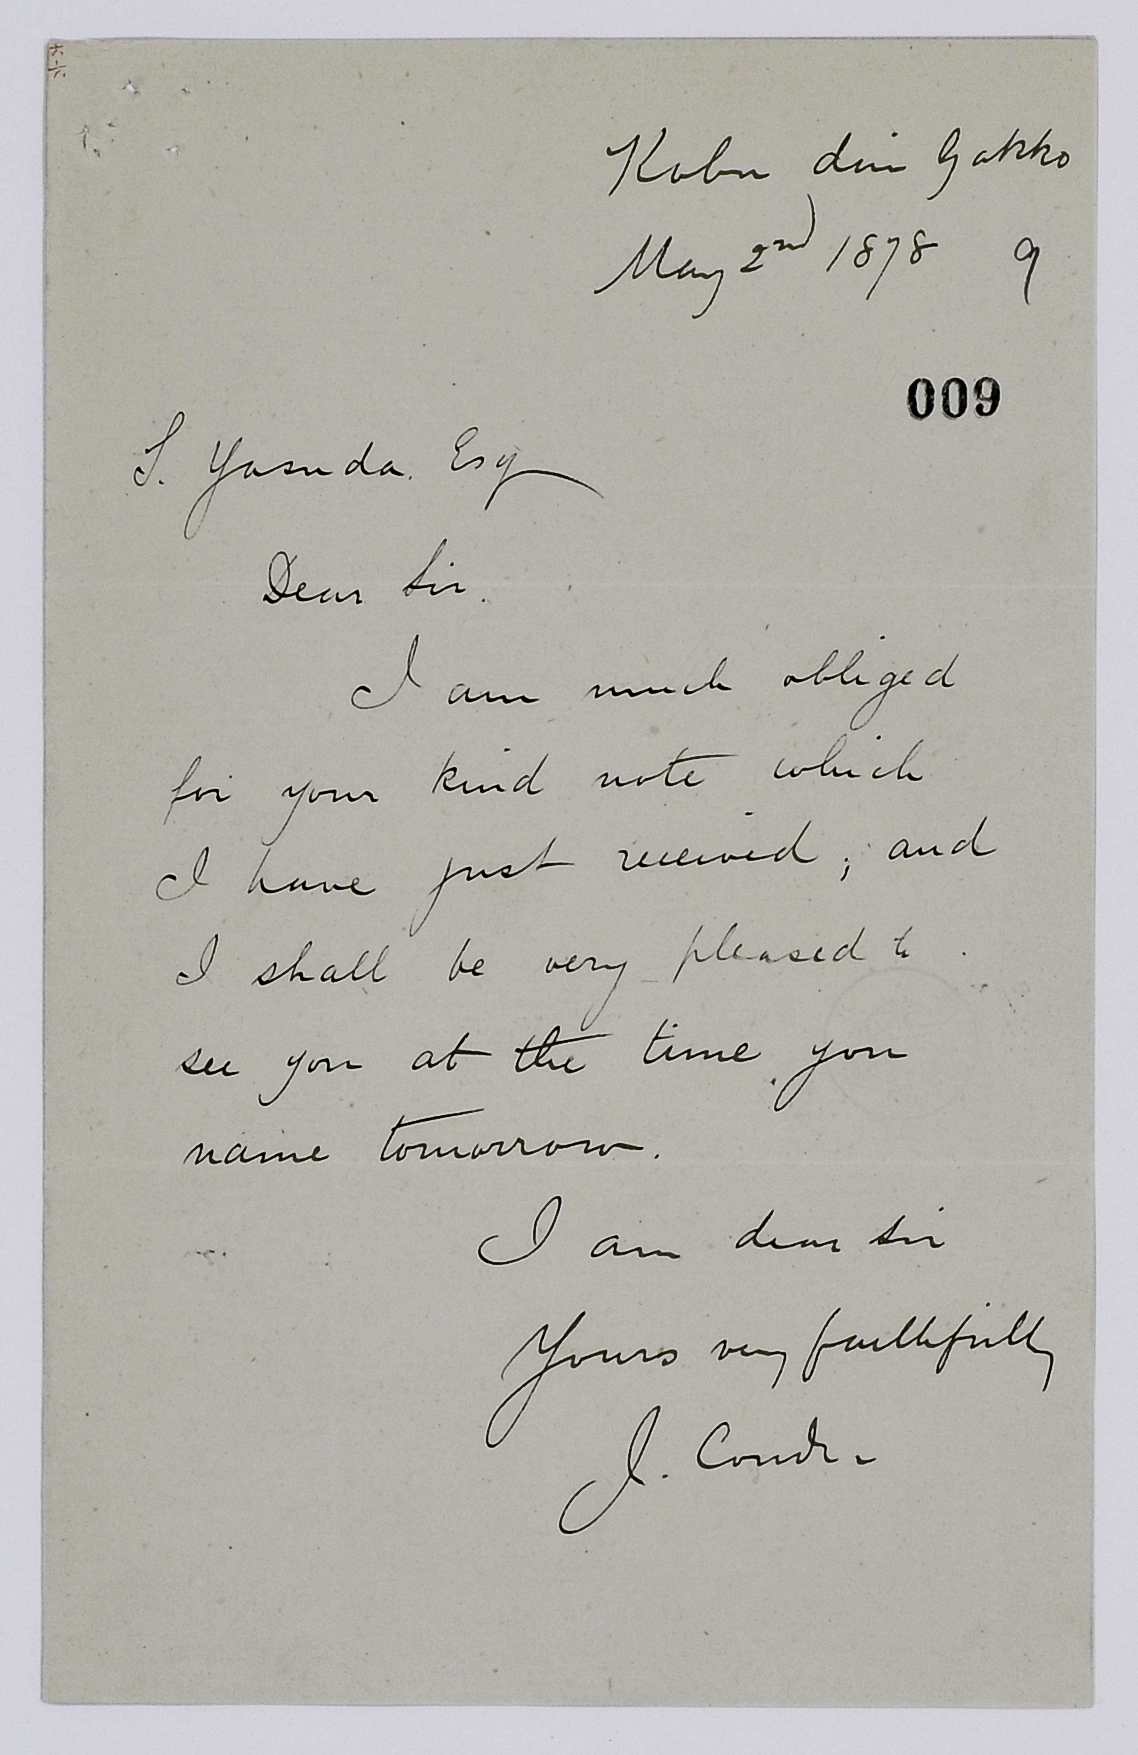 六六
Kobu dai Gakko
May 2nd 1878 9
009
S. Yasuda. Esq
Dear Sir.
I am much obliged
for your kind note which
I have just received; and
I shall be very pleased to
see you at the time you
name tomorrow.
I am dear sir
Yours very faithfully
J. Conder